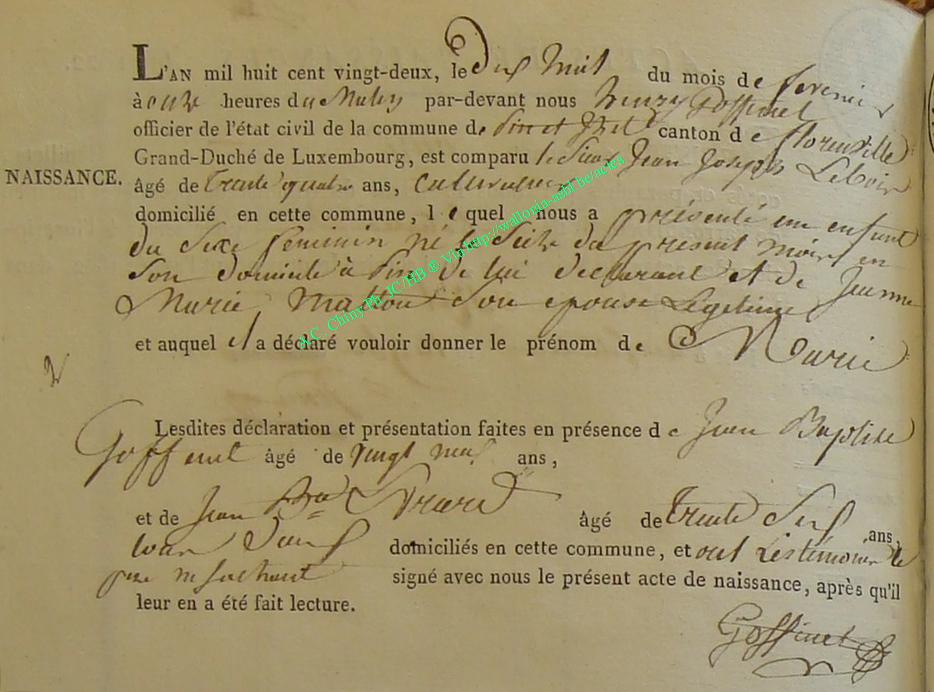 L'AN mil huit cent vingt-deux, le dix huit du mois de fevrier
à onze heures du Matin par-devant nous henry Goffinet
officier de l'état civil de la commune de canton de florenville
Grand-Duché de Luxembourg, est comparu le Sieur Jean Joseph
NAISSANCE.
âgé de trente quatre ans, cultivateur
domicilié en cette commune, lequel nous a présenté un enfant
du Sexe feminin né le Seize du present mois en
Son domicile à de lui declarant et de Jeanne
Marie Mathon Son epouse Légitime
et auquel il a déclaré vouloir donner le prénom de Marie
2
Lesdites déclaration et présentation faites en présence de Jean Baptiste
Goffinet âgé de vingt ans,
et de Jean Bte âgé de trente Six ans,
tous deux domiciliés en cette commune, et ont Les témoins le
pere ne sachant signé avec nous le présent acte de naissance, après qu'il
leur en a été fait lecture.
Goffinet
A.C. Chiny Ph. JC/HB.® Via http://wallonia-asbl.be/actes